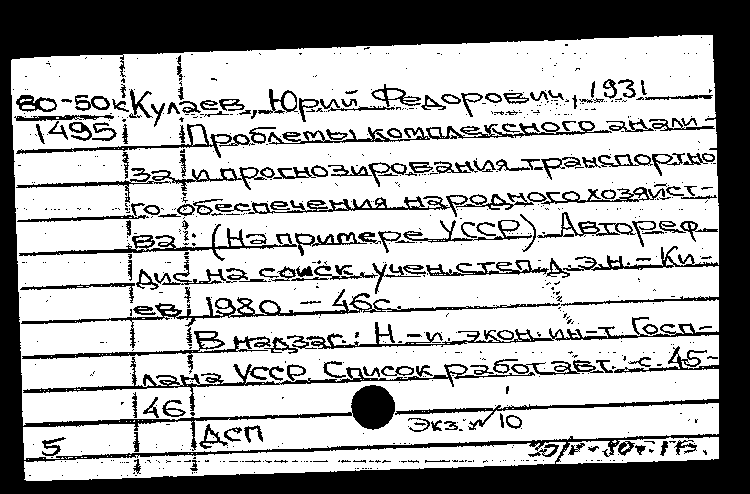 80-50к Кулаев, Юрий Федорович, 1931
1495 Проблемы комплексного анали-
за и прогнозирования транспортно
го обеспечения народного хозяйст-
ва : (На примере УССР). Автореф.
дис. на соиск. учен. степ. д.э.н. - Ки-
ев, 1980. - 46с.
В надзаг.: Н.-и. экон. ин-т Госп-
лана УССР. Список работ авт.: с. 45-
46
Экз. № 10
5 ДСП